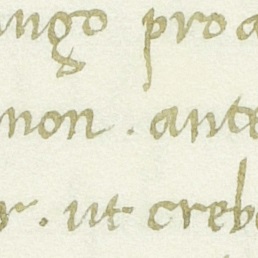 ango pro a
non . ante
r . ut creb